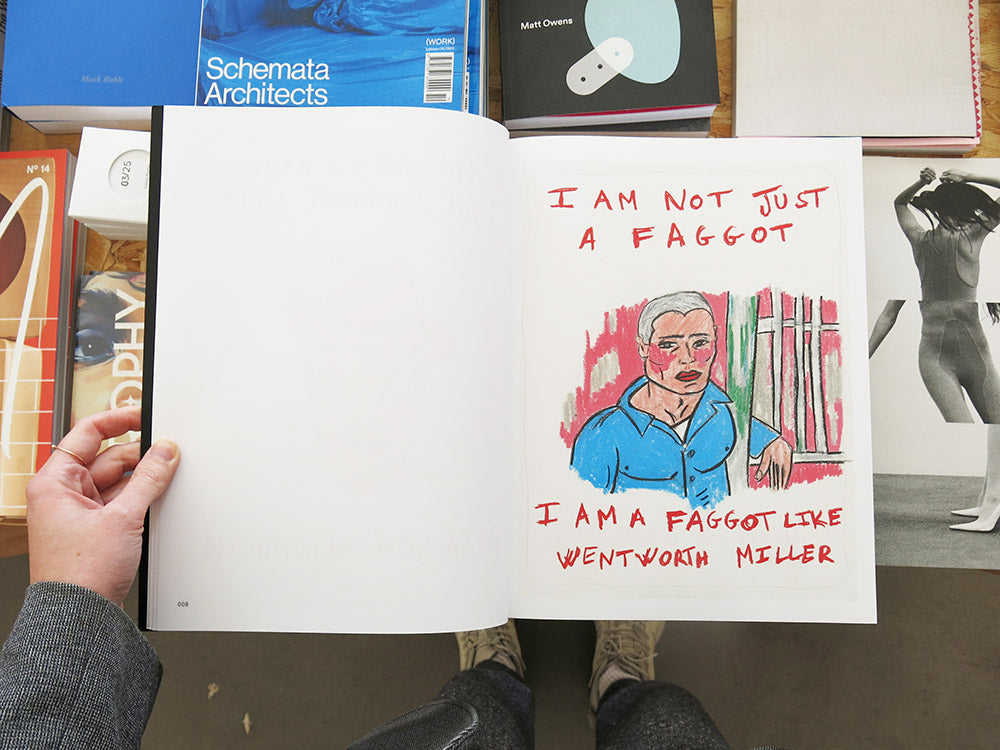 Mark Bohle
Schemata
Architects
(WORK)
Matt Owens
Nº 14
03/25
OPHY
I AM NOT JUST
A FAGGOT
I AM A FAGGOT LIKE
WENTWORTH MILLER
008